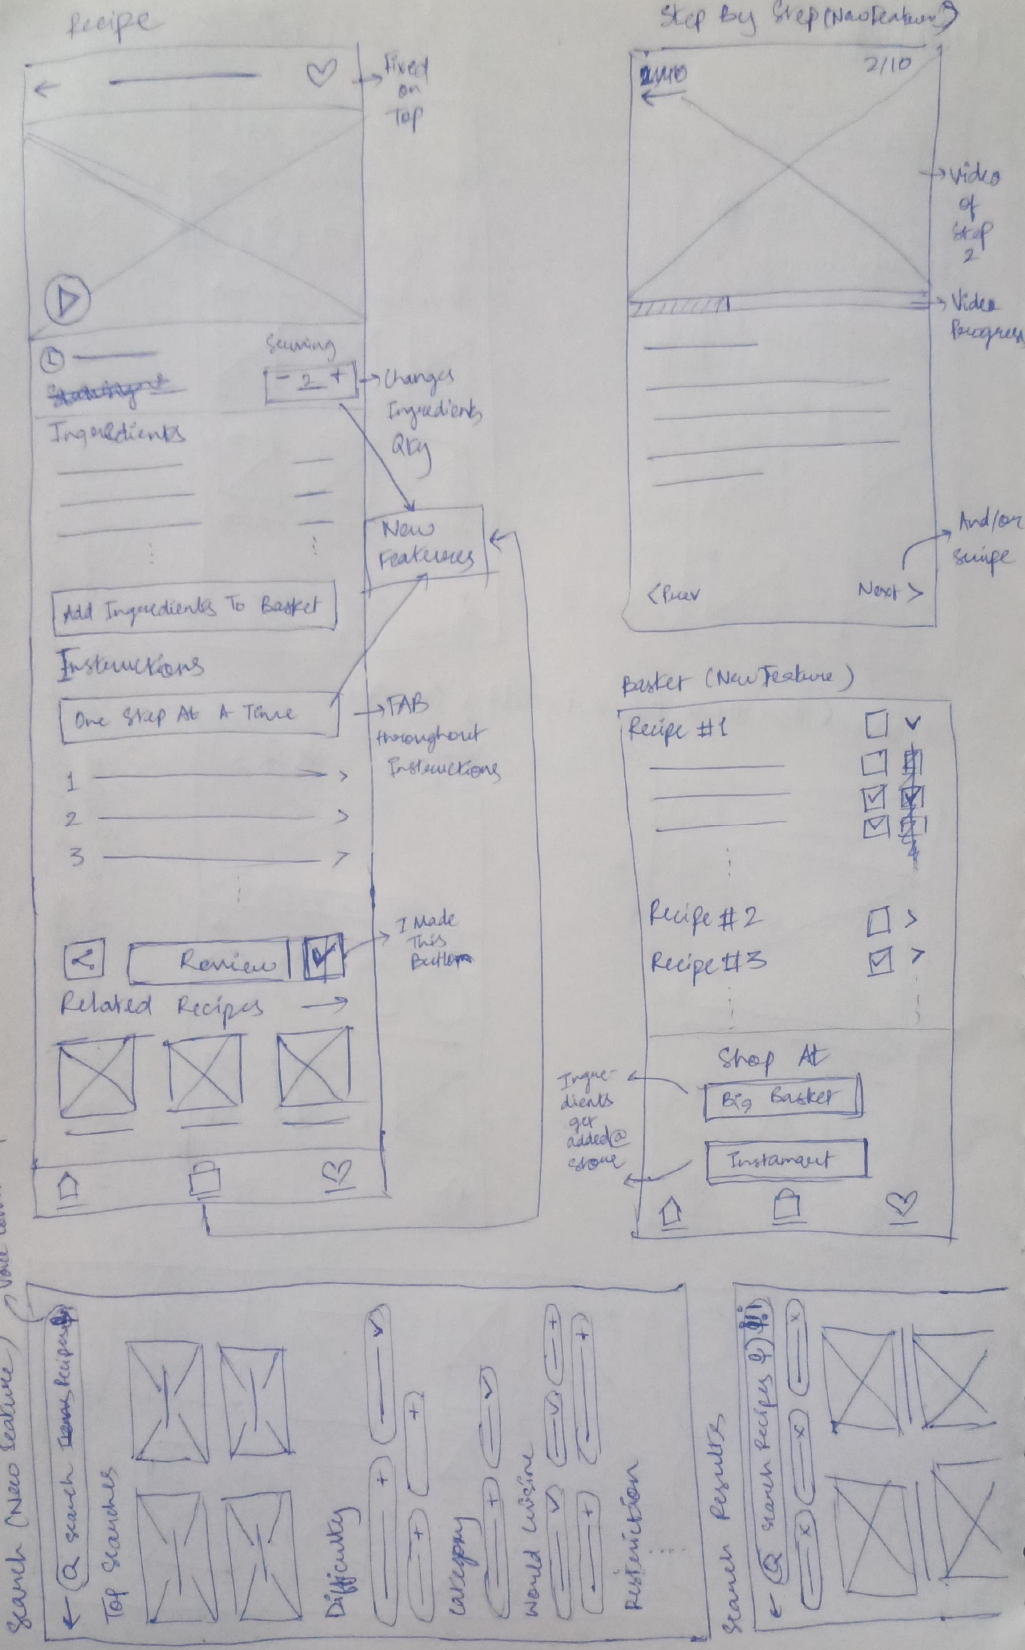 Recipe
Fixed
on
Top
Serving
- 2 +
Changes
Ingredients
Qty
Ingredients
New
Features
Add Ingredients To Basket
Instructions
One Step At A Time
FAB
throughout
Instructions
1
2
3
I Made
This
Button
Review
Related Recipes
Step By Step (New Feature)
2/10
Video
of
Step
2
Video
Progress
And/or
swipe
< Prev
Next >
Basket (New Feature)
Recipe #1
Recipe #2
Recipe #3
Shop At
Big Basket
Instamart
Ingre-
dients
get
added @
store
Search (New Feature)
Search Recipes
Top Searches
Difficulty
Category
World Cuisine
Restriction
Search Results
Search Recipes